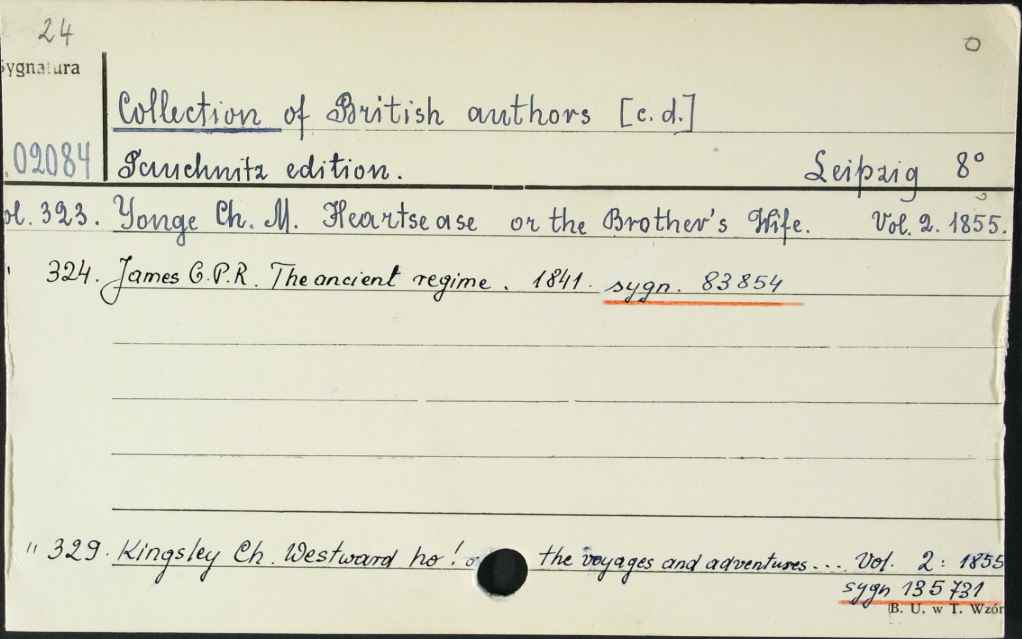 24
Sygnatura
Collection of British authors [c.d.]
02084 Tauchnitz edition. Leipzig 8°
ol. 323. Yonge Ch. M. Heartsease or the Brother's Wife. Vol. 2. 1855.
" 324. James G.P.R. The ancient regime. 1841. sygn. 83854
" 329. Kingsley Ch. Westward ho! the voyages and adventures... Vol. 2: 1855
sygn 135731
B. U. w T. Wzór